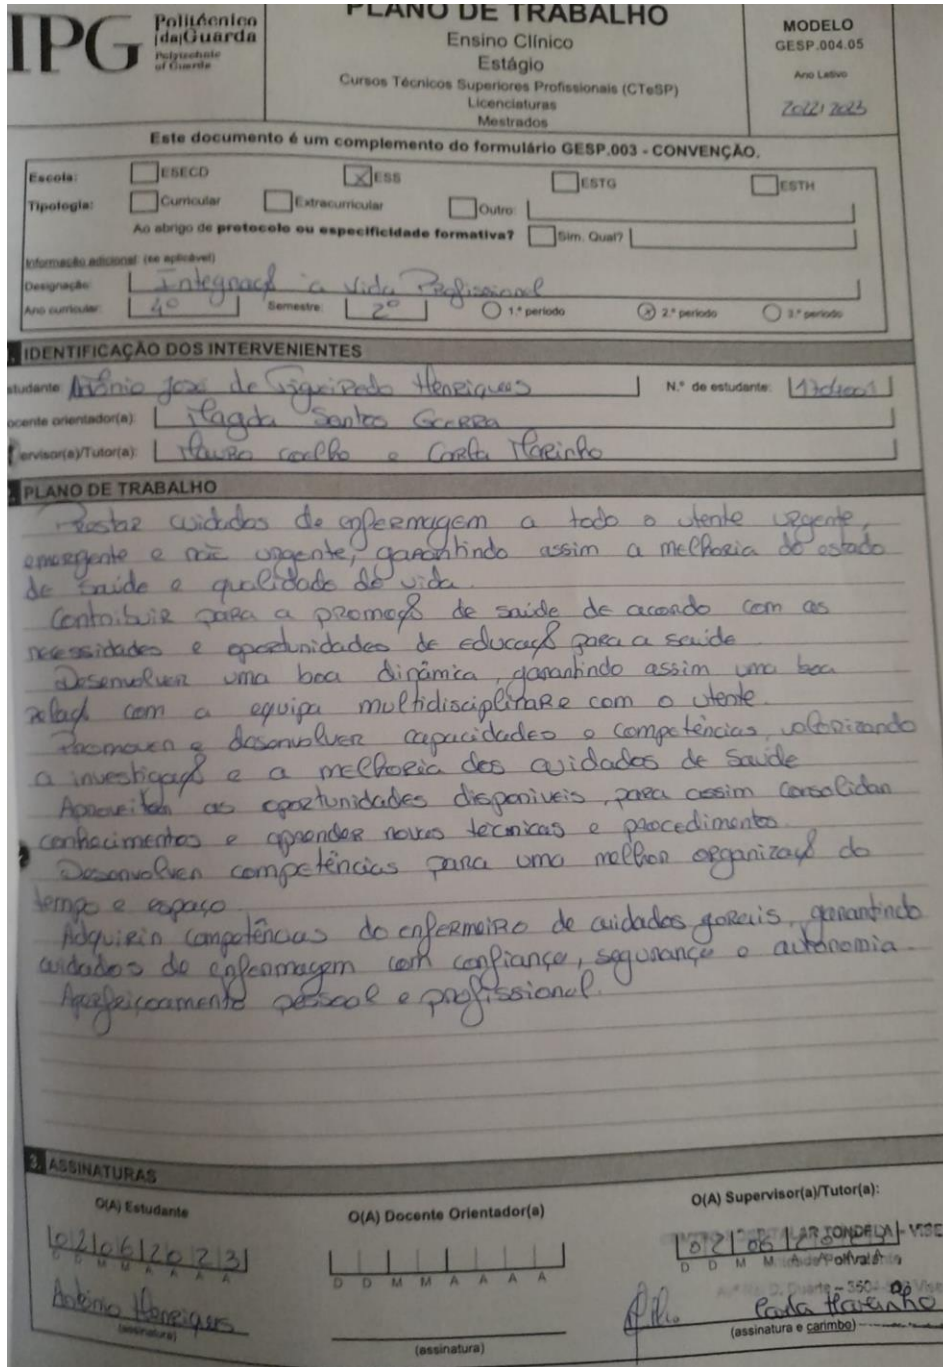 IPG Politécnico
|da|Guarda
Polytechnic
of Guarda
PLANO DE TRABALHO
Ensino Clínico
Estágio
Cursos Técnicos Superiores Profissionais (CTeSP)
Licenciaturas
Mestrados
MODELO
GESP.004.05
Ano Letivo
2022/2023
Este documento é um complemento do formulário GESP.003 - CONVENÇÃO.
Escola: ESECD X ESS ESTG ESTH
Tipologia: Curricular Extracurricular Outro:
Ao abrigo de protocolo ou especificidade formativa? Sim. Qual?
Informação adicional: (se aplicável)
Designação: Integração à Vida Profissional
Ano curricular: 4º Semestre: 2º 1.º período X 2.º período 3.º período
IDENTIFICAÇÃO DOS INTERVENIENTES
studante: António José de Figueiredo Henriques N.º de estudante:
ocente orientador(a): Magda Santos Guerra
ervisor(a)/Tutor(a): Mauro Coelho e Carla Marinho
PLANO DE TRABALHO
Prestar cuidados de enfermagem a todo o utente urgente,
emergente e não urgente, garantindo assim a melhoria do estado
de saúde e qualidade de vida.
Contribuir para a promoção de saúde de acordo com as
necessidades e oportunidades de educação para a saúde
Desenvolver uma boa dinâmica, garantindo assim uma boa
relação com a equipa multidisciplinar e com o utente.
Promover e desenvolver capacidades e competências, valorizando
a investigação e a melhoria dos cuidados de saúde
Aproveitar as oportunidades disponiveis, para assim consolidar
conhecimentos e aprender novas técnicas e procedimentos.
Desenvolver competências para uma melhor organização do
tempo e espaço.
Adquirir competências do enfermeiro de cuidados gerais, garantindo
cuidados de enfermagem com confiança, segurança e autonomia.
Aperfeiçoamento pessoal e profissional.
3. ASSINATURAS
O(A) Estudante
02062023
D D M M A A A A
António Henriques
(assinatura)
O(A) Docente Orientador(a)
D D M M A A A A
(assinatura)
O(A) Supervisor(a)/Tutor(a):
TONDELA - VISE
02 06
D D M M
Polivalente
Duarte - 3504
Carla Marinho
(assinatura e carimbo)